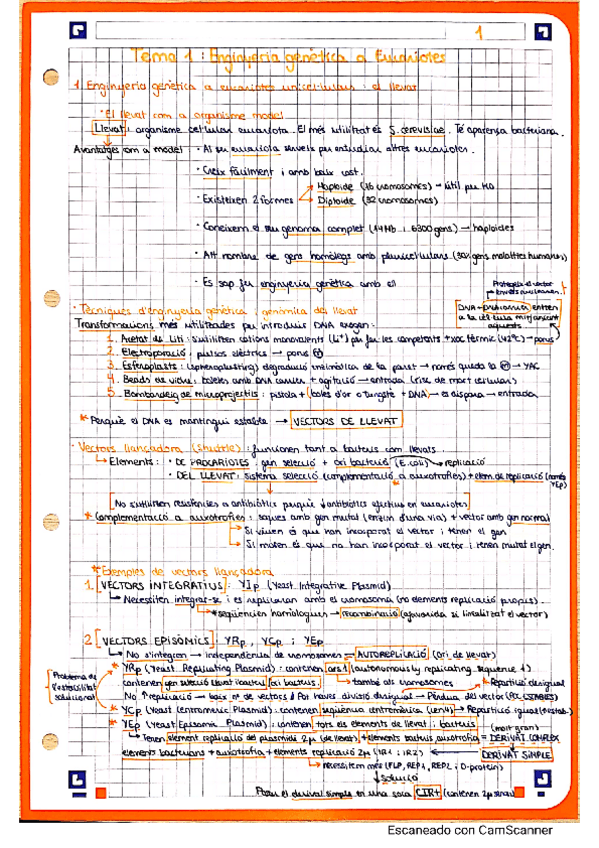 1
Tema 1 : Enginyeria genètica a Eucariotes
1. Enginyeria genètica a eucariotes unicel·lulars : el llevat
· El llevat com a organisme model
Llevat : organisme cel·lular eucariota. El més utilitzat és S. cerevisiae. Té aparença bacteriana.
Avantatges com a model · Al ser eucariota serveix per estudiar altres eucariotes.
· Creix fàcilment i amb baix cost.
· Existeixen 2 formes
Haploide (16 cromosomes) → útil per KO
Diploide (32 cromosomes)
· Coneixem el seu genoma complet (14Mb i 6300 gens) → haploides
· Alt nombre de gens homòlegs amb pluricel·lulars (30% gens malalties humanes)
· Es sap fer enginyeria genètica amb ell
Protegeix el vector
· Tècniques d'enginyeria genètica i genòmica del llevat
DNA + entren
a la cèl·lula mitjançant
aquests
Transformacions més utilitzades per introduir DNA exogen :
1. Acetat de Liti : s'utilitzen cations monovalents (Li⁺) per fer les competents + xoc tèrmic (42°C) → porus
2. Electroporació : pulsos elèctrics → porus
3. Esferoplasts : (spheroplasting) degradació enzimàtica de la paret → només queda la → YAC
4. Beads de vidre : boletes amb DNA + agitació → entrada (risc de mort cel·lular)
5. Bombardeig de microprojectils : pistola + (boles d'or o tungstè + DNA) → es dispara → entrada
* Perquè el DNA es mantingui estable → VECTORS DE LLEVAT
· Vectors llançadora (Shuttle) : funcionen tant a bacteris com llevats
Elements : · DE PROCARIOTES : gen selecció + ori bacterià (E. coli) → replicació
· DEL LLEVAT : sistema selecció (complementació a auxotròfies) + elem. de replicació (només YEp)
No s'utilitzen resistències a antibiòtics perquè antibiòtics efectius en eucariotes
* Complementació a auxotròfies : soques amb gen mutat (enzim d'una via) + vector amb gen normal
Si viuen és que han incorporat el vector i tenen el gen
Si moren és que no han incorporat el vector i tenen mutat el gen.
* Exemples de vectors llançadora
1. VECTORS INTEGRATIUS : YIp (Yeast Integrative Plasmid)
Necessiten integrar-se i es replicaran amb el cromosoma (no elements replicació propis).
* seqüències homòlogues → recombinació (afavorida si linealitzat el vector)
2. VECTORS EPISÒMICS : YRp, YCp i YEp
No s'integren → independència de cromosomes = AUTOREPLICACIÓ (ori de llevat)
Problema de
* YRp (Yeast Replicating Plasmid) : contenen ars1 (autonomously replicating sequence 1)
contenen gen selecció llevat i bacteri i ori bacteris. també als cromosomes * Repartició desigual
No replicació → baix nº de vectors i Pot haver divisió desigual → Pèrdua del vector
* YCp (Yeast Centromeric Plasmid) : contenen seqüència centromèrica (cen) → Repartició igual (+ estab.)
* YEp (Yeast Episomic Plasmid) : contenen tots els elements de llevat i bacteris (molt gran)
Tenen element replicació del plasmidi 2µ (de llevat) + elements bacteris, auxotròfia = DERIVAT COMPLEX
elements bacterians + auxotròfia + elements replicació 2µ (IR1 i IR2) ← DERIVAT SIMPLE
necessiten més (FLP, REP1, REP2 i D-protein)
solució
Posar el derivat simple en una soca CIR+ (contenen 2µ sencer)
Escaneado con CamScanner